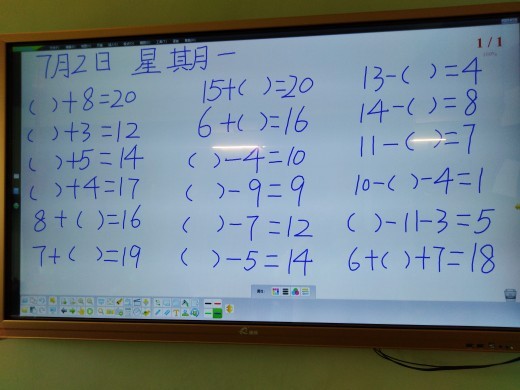 1/1
7月2日 星期一
( )+8=20
( )+3=12
( )+5=14
( )+4=17
8+( )=16
7+( )=19
15+( )=20
6+( )=16
( )-4=10
( )-9=9
( )-7=12
( )-5=14
13-( )=4
14-( )=8
11-( )=7
10-( )-4=1
( )-11-3=5
6+( )+7=18